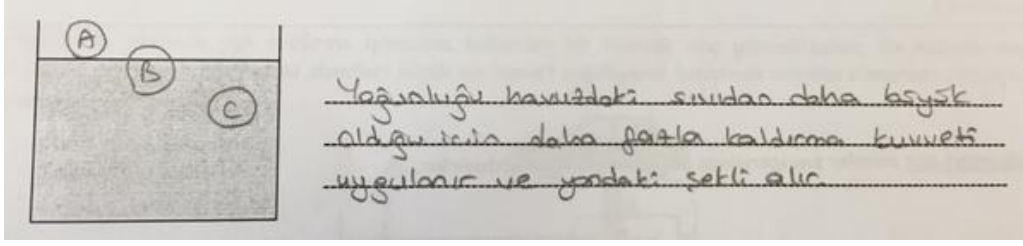 A
B
C
Yoğunluğu havuzdaki sıvıdan daha büyük
olduğu için daha fazla kaldırma kuvveti
uygulanır ve yandaki şekli alır.